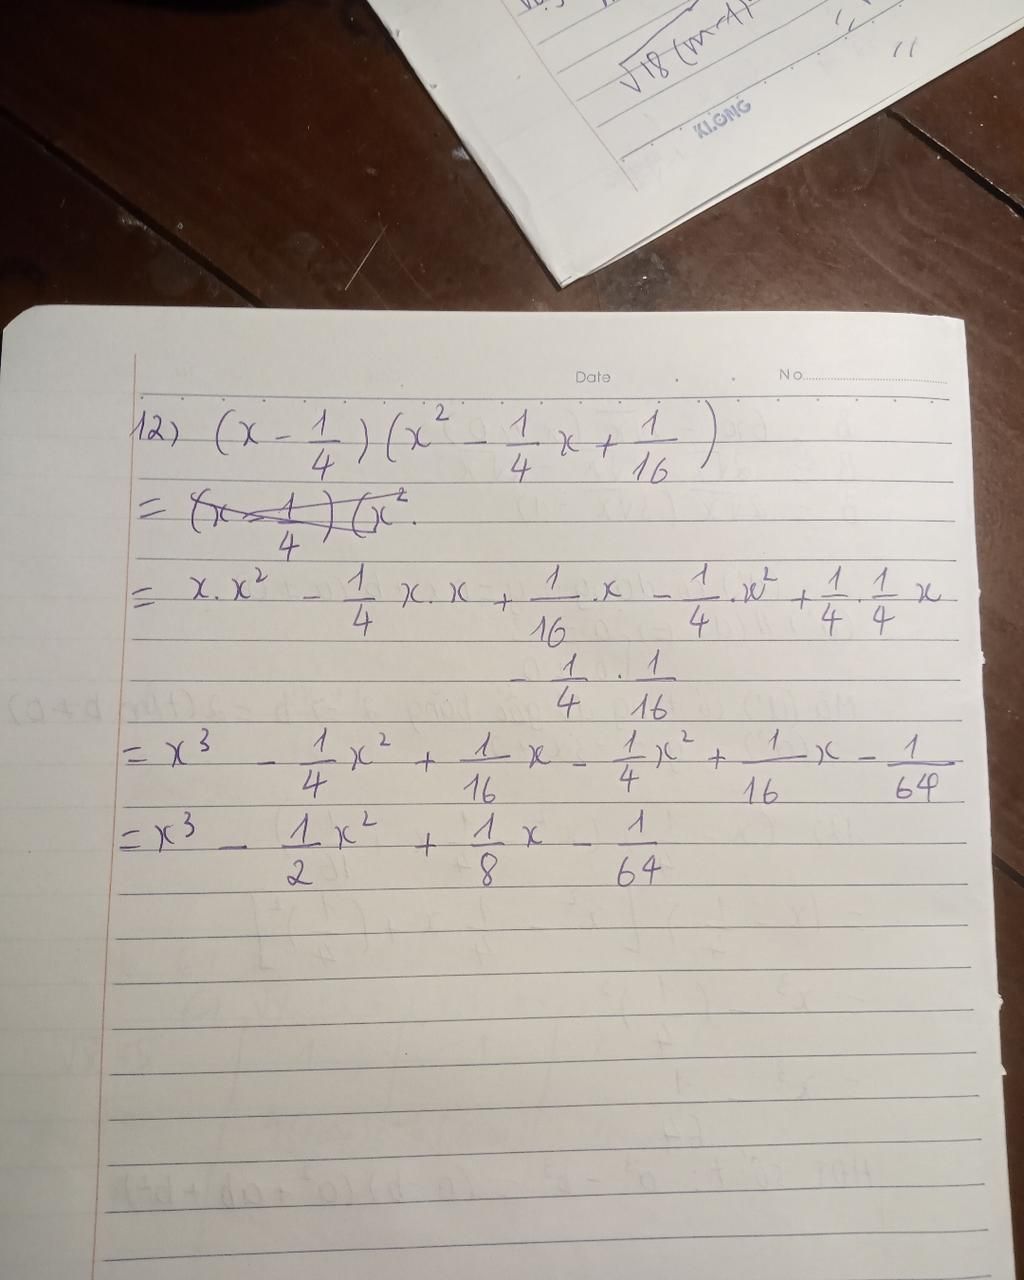 √18 (m-1)
KLONG
Date . . No
12) (x - 1/4)(x² - 1/4 x + 1/16)
= (x - 1/4)(x².
= x.x² - 1/4 x.x + 1/16 .x - 1/4 .x² + 1/4 . 1/4 x
- 1/4 . 1/16
= x³ - 1/4 x² + 1/16 x - 1/4 x² + 1/16 x - 1/64
= x³ - 1/2 x² + 1/8 x - 1/64